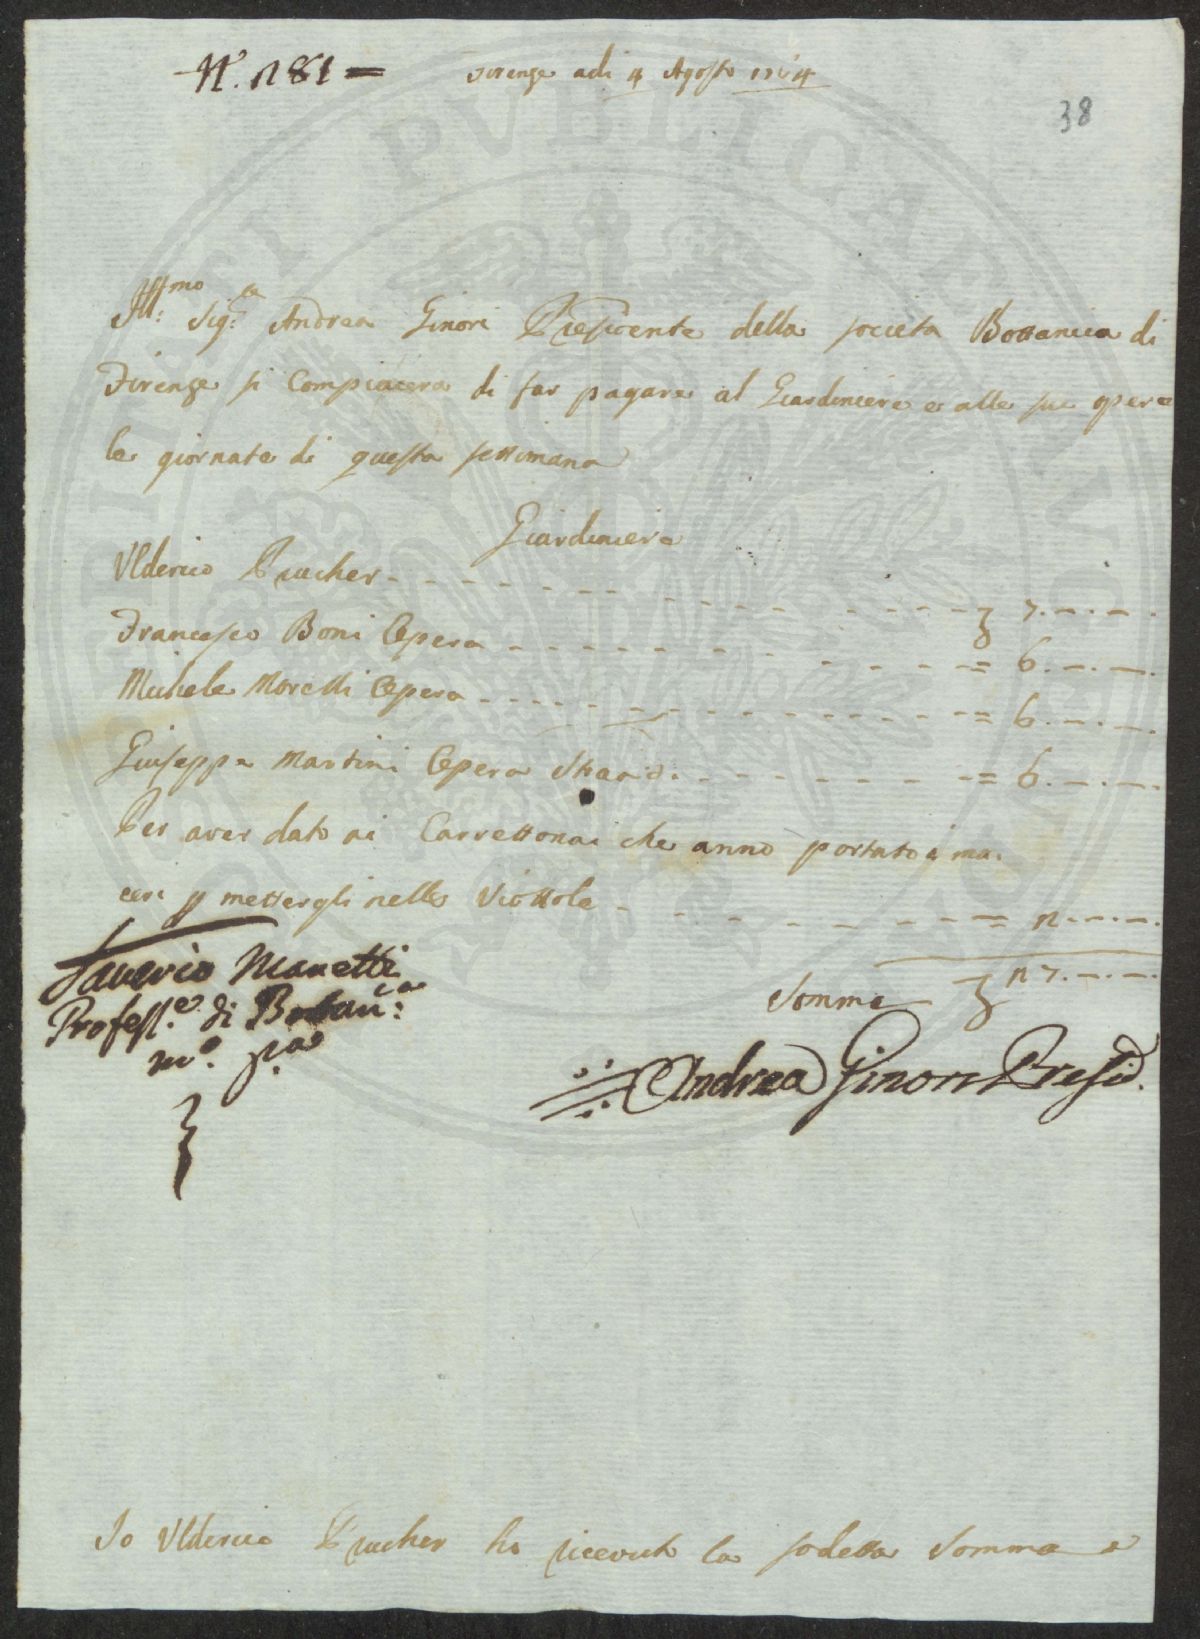 N.° 181 =
Firenze adi 4 Agosto 1764
38
Ill:mo Sig:re Andrea Ginori Presidente della societa Bottanica di
Firenze si Compiacera di far pagare al Giardiniere e alle sue opere
le giornate di questa settimana
Giardiniere
Ulderico Prucher - - - - 7. — . — .
Francesco Boni Opera - - - - = 6. — . — .
Michele Morelli Opera - - - - = 6. — . — .
Giuseppe Martini Opera - - - - = 6. — . — .
Per aver dato ai Carrettonai che anno portato i ma:
ceri p mettergli nelle Viottole - - - - = 2. — . — .
Somma 27. — . — .
Saverio Manetti
Profess.e di Botan:ca
m.o p.a
Andrea Ginori Presid.
Io Ulderico Prucher ho riceuto la sodetta Somma
SPQR
PVBLICAE